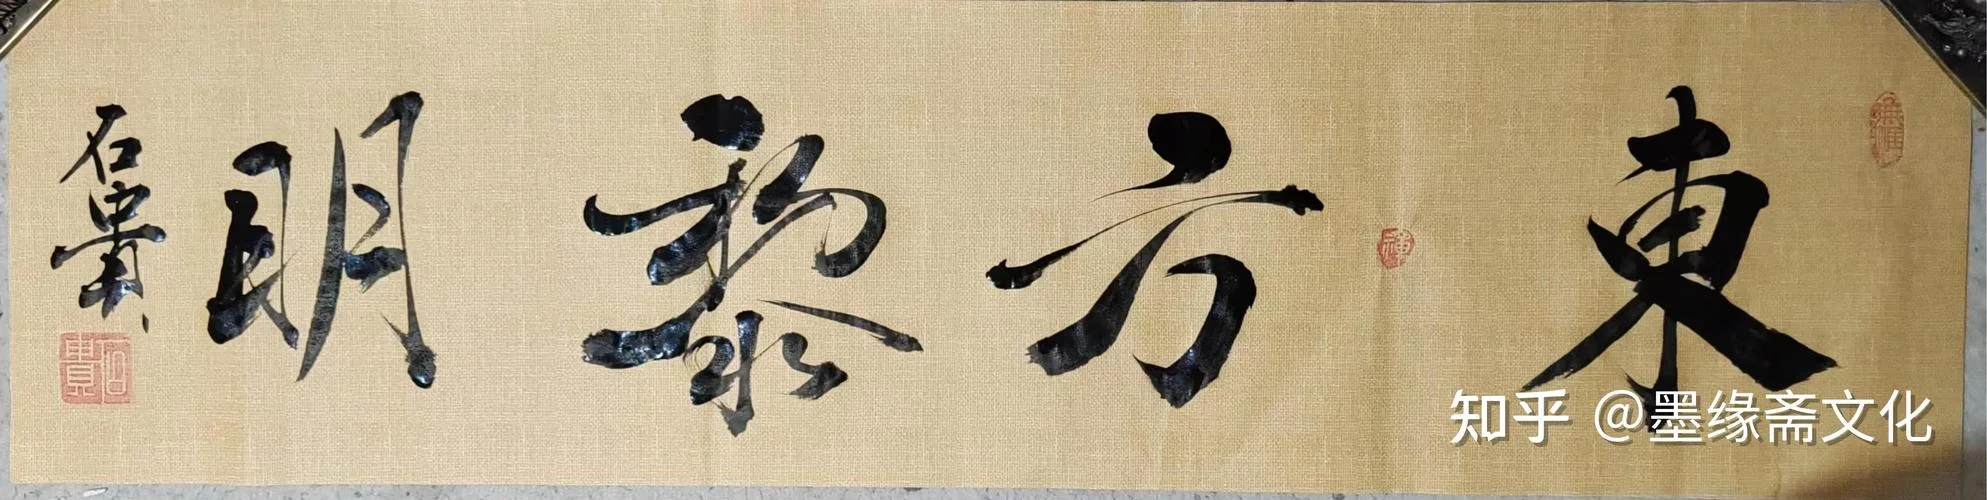 東方黎明
石貴
石貴
知乎 @墨缘斋文化